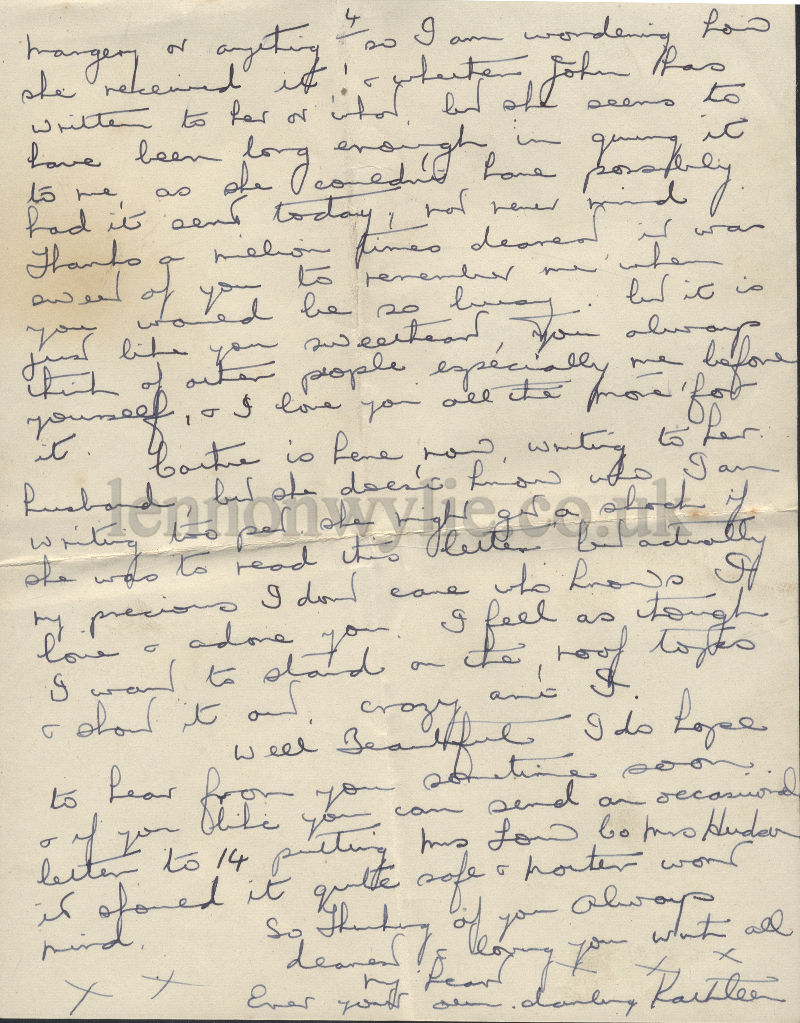 4
Margery or anything so I am wondering how
she received it! & whether John has
written to her or what, but she seems to
have been long enough in giving it
to me, as she couldn't have possibly
had it sent today, not never mind
Thanks a million times dearest it was
sweet of you to remember me when
you would be so busy. but it is
just like you sweetheart, you always
think of other people especially me before
yourself, & I love you all the more for
it. is here now, writing to her
husband, but she doesn't know who I am
writing too yet, she might get a shock if
she was to read this letter but actually
my precious I don't care who knows I
love & adore you. I feel as though
I want to stand on the roof tops
& shout it out. crazy aint I.
Well Beautiful I do hope
to hear from you sometime soon
& if you like you can send an occasional
letter to 14 putting Mrs Low Co Mrs Hudson
it quite safe & wont
mind. So Thinking of you Always
dearest & loving you with all
my heart x x x
x x Ever your own darling Kathleen
lennonwylie.co.uk